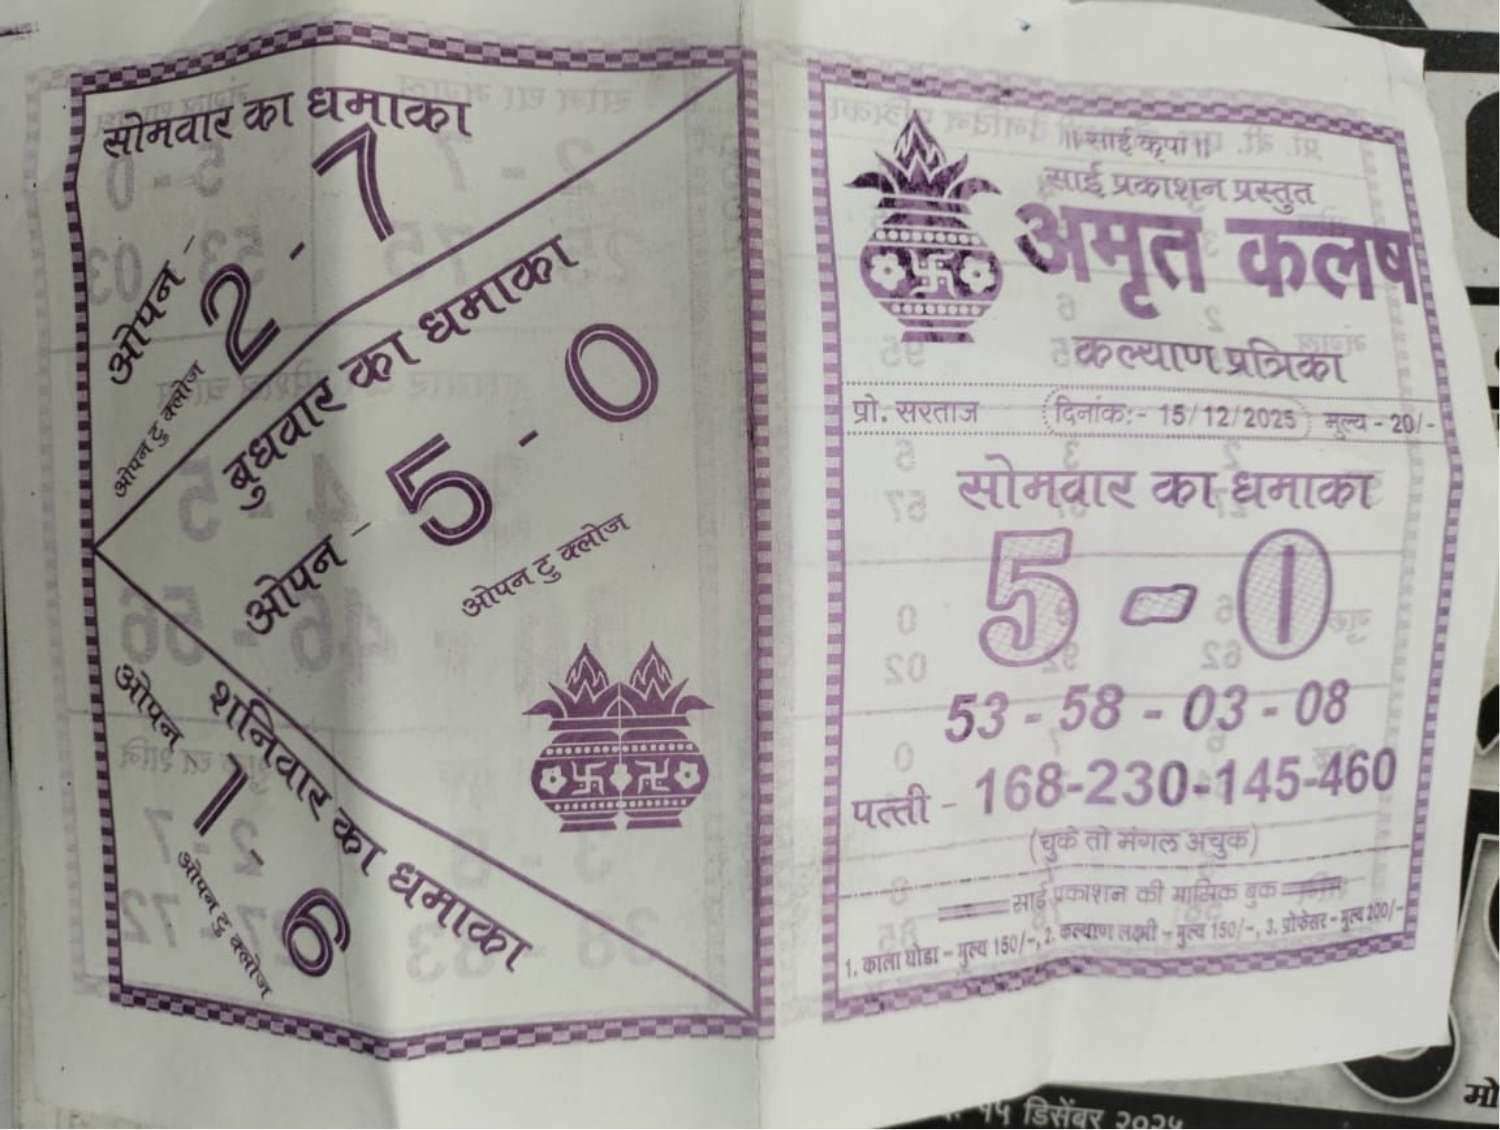 सोमवार का धमाका
ओपन -
2 - 7
ओपन टु क्लोज
बुधवार का धमाका
ओपन - 5 - 0
ओपन टु क्लोज
शनिवार का धमाका
ओपन
1 - 6
ओपन टु क्लोज
॥ साई कृपा ॥
साई प्रकाशन प्रस्तुत
अमृत कलष
कल्याण प्रत्रिका
प्रो. सरताज दिनांक:- 15/12/2025 मुल्य - 20/-
सोमवार का धमाका
5 - 0
53 - 58 - 03 - 08
पत्ती - 168-230-145-460
(चुके तो मंगल अचुक)
साई प्रकाशन की मासिक बुक
1. काला घोडा - मुल्य 150/-, 2. कल्याण लक्ष्मी - मुल्य 150/-, 3. प्रोफेसर - मुल्य 200/-
१५ डिसेंबर २०२५
मो